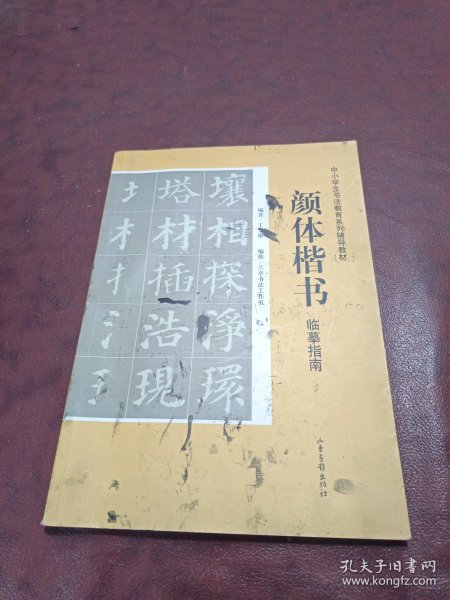 中小学生书法教育系列辅导教材
颜体楷书
临摹指南
编著
编撰 兰亭书法工作室
山东画报出版社
壤 相 探 淨 環
塔 材 插 浩 現
孔夫子旧书网
www.kongfz.com